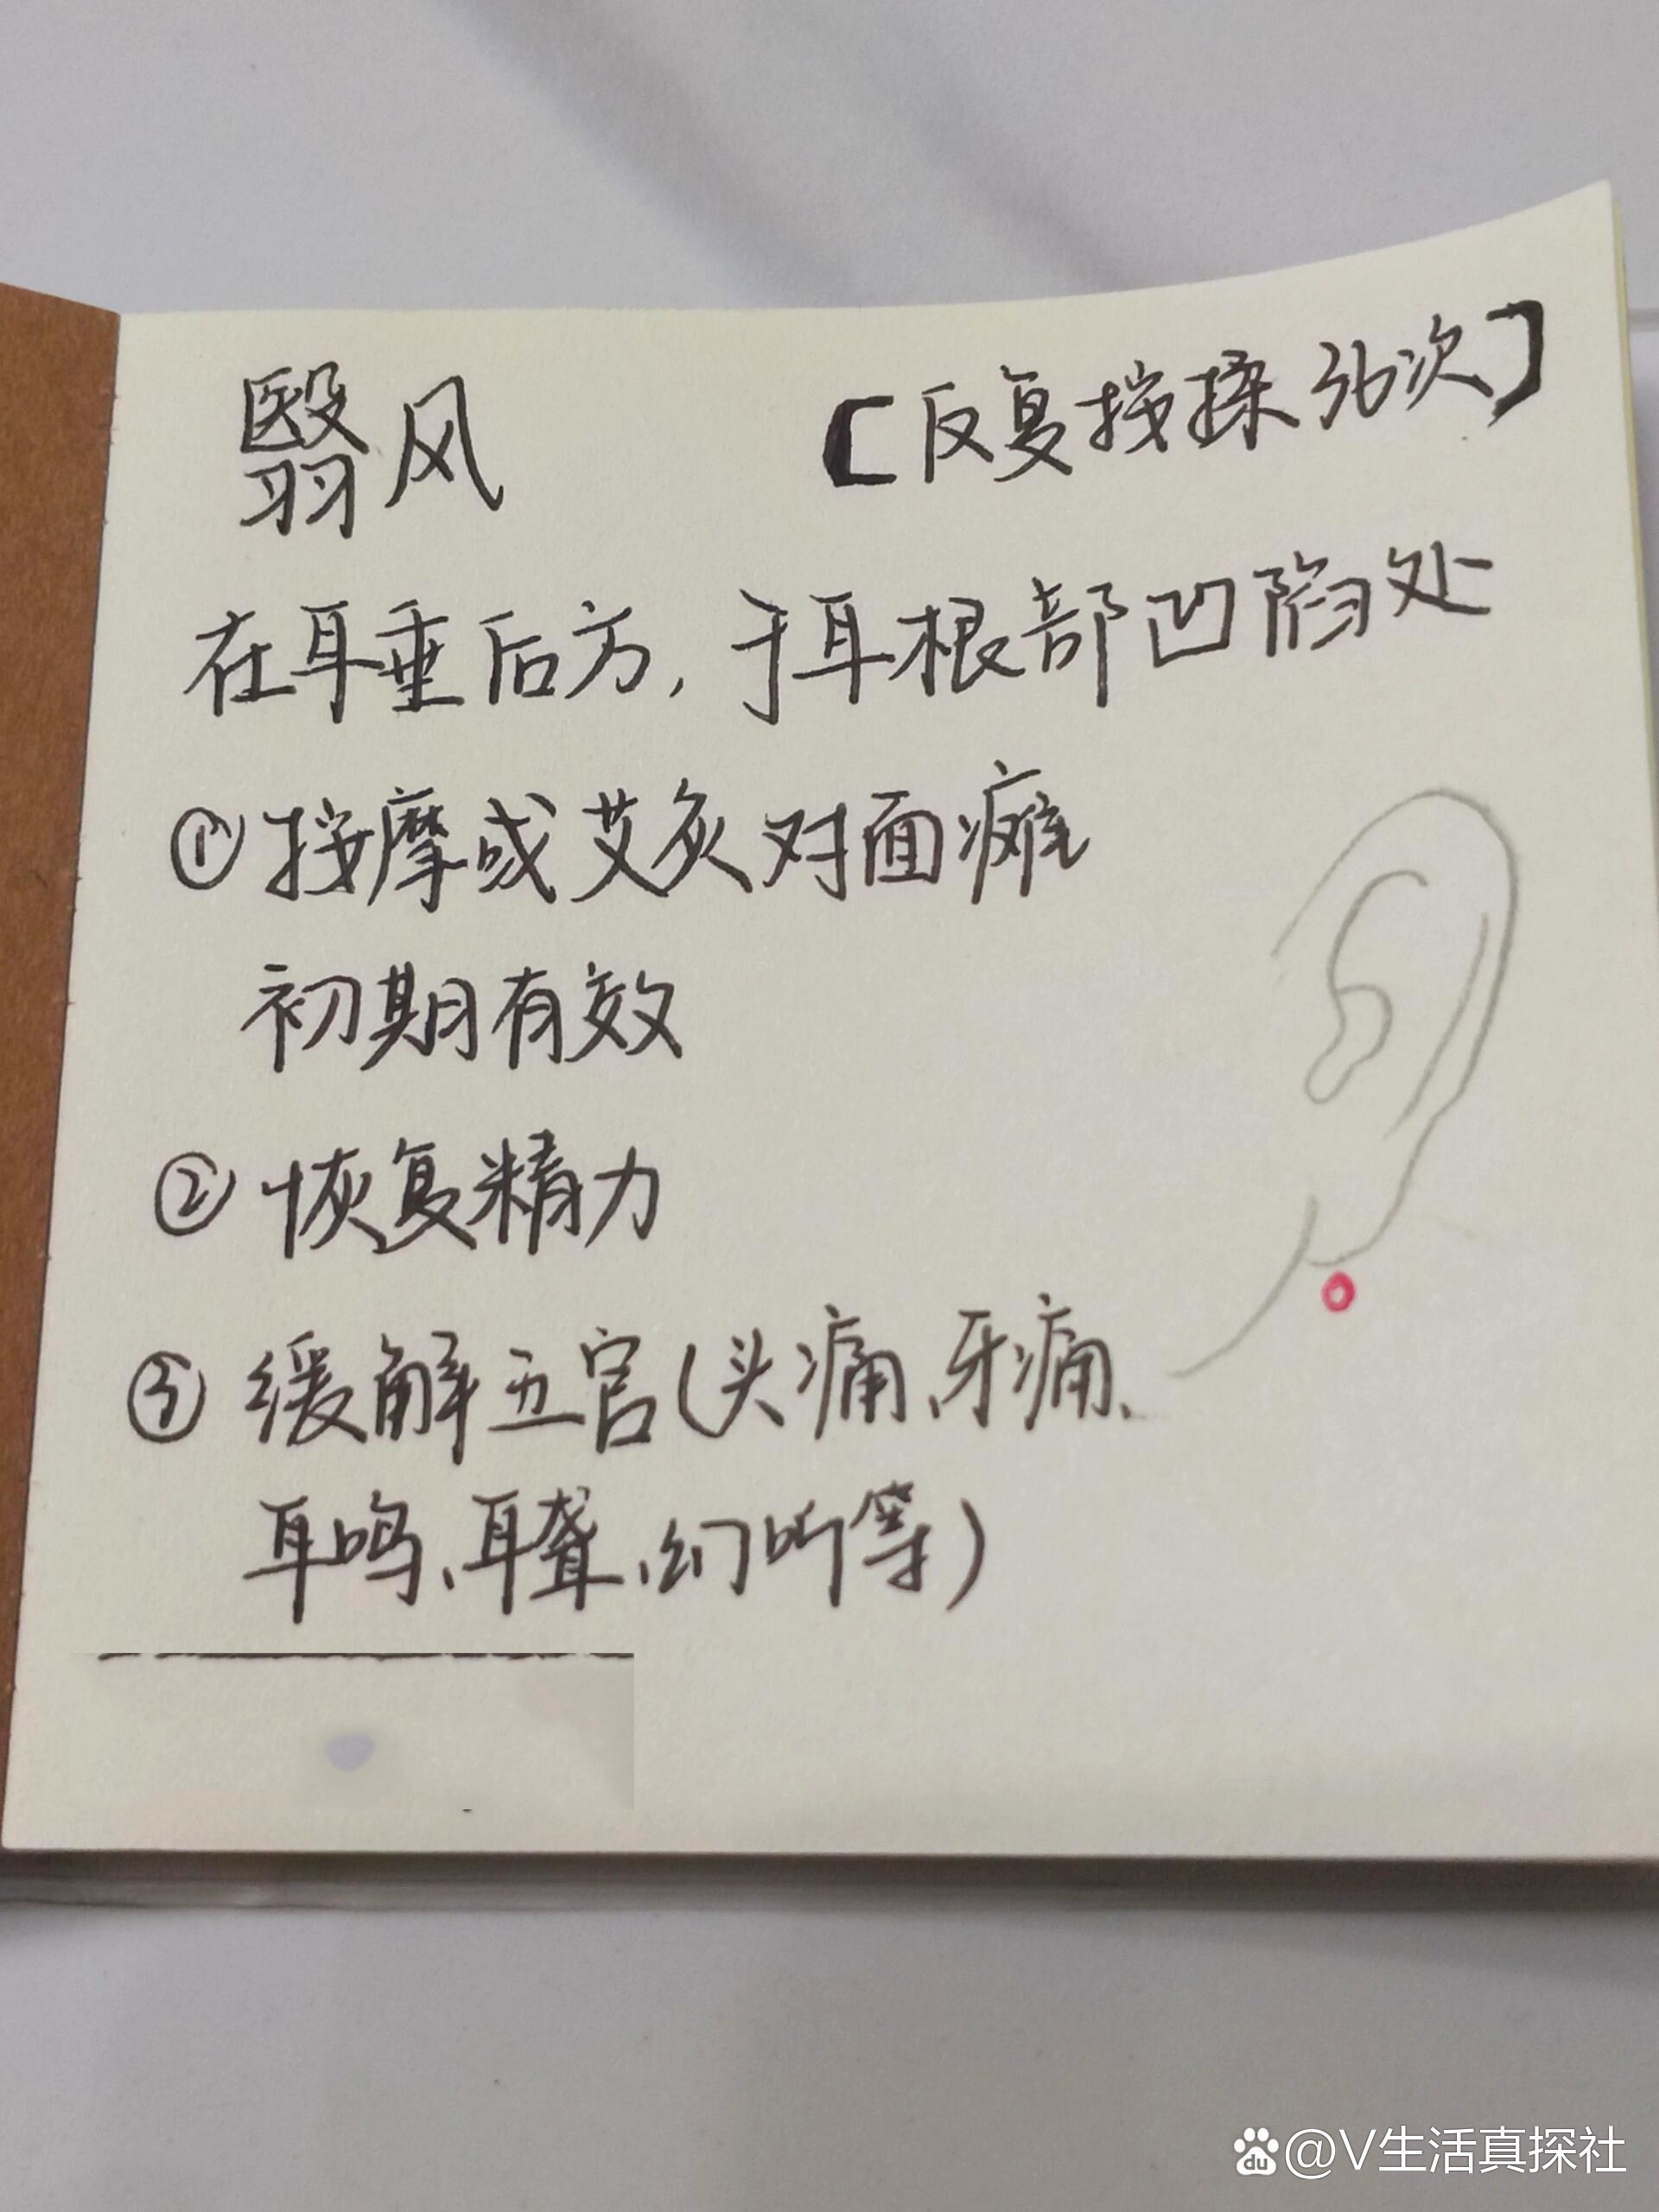 翳风 【反复按揉36次】
在耳垂后方,于耳根部凹陷处
①按摩或艾灸对面瘫
初期有效
②恢复精力
③缓解五官(头痛、牙痛、
耳鸣、耳聋、幻听等)
du @V生活真探社